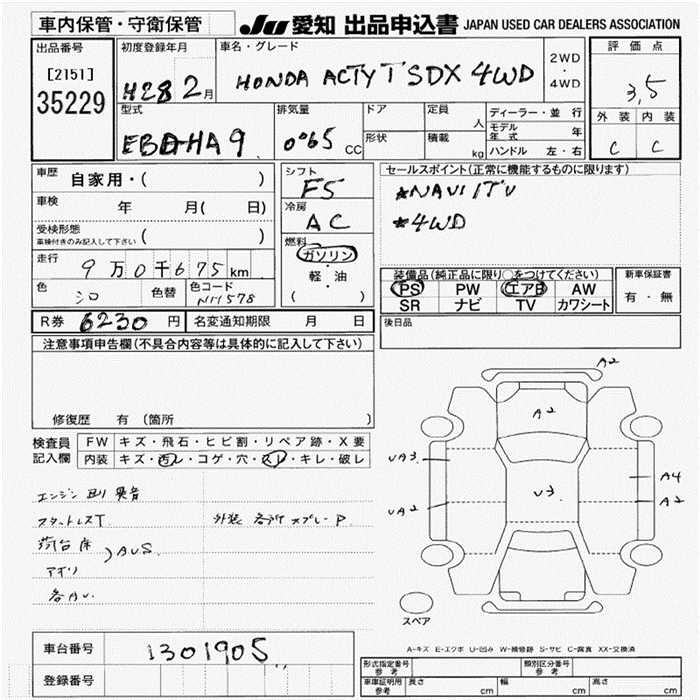 車内保管・守衛保管 JU 愛知 出品申込書 JAPAN USED CAR DEALERS ASSOCIATION
出品番号 初度登録年月 車名・グレード 2WD ・ 4WD 評価点
[2151]
35229 H28 2月 HONDA ACTY T SDX 4WD 3,5
型式 排気量 ドア 定員 人 ディーラー・並行 外装 内装
形状 積載 kg モデル年式 年
0065 CC ハンドル 左・右 C C
車歴 自家用・( ) シフト F5 セールスポイント(正常に機能するものに限ります)
車検 年 月( 日) 冷房 AC ★NAVI 1TV
受検形態 ( ) ★4WD
車検付きのみ記入して下さい
燃料 ガソリン
軽・油
( )
走行 9万0千675km 装備品(純正品に限り○をつけてください) 新車保証書
色 シロ 色替 色コード NH578 PS PW エアB AW 有・無
SR ナビ TV カワシート
R券 6230円 名変通知期限 月 日 後日品
注意事項申告欄(不具合内容等は具体的に記入して下さい)
修復歴 有 (箇所 )
検査員記入欄 FW キズ・飛石・ヒビ割・リペア跡・X要
内装 キズ・汚レ・コゲ・穴・スレ・キレ・破レ
A2
A2
UA3
U3
A4
UA2
A2
エンジン 異音
スタートレスT
外装 各所 スプレーP
荷台床
アオリ
各AU
スペア
A-キズ E-エクボ U-凹み W-補修跡 S-サビ C-腐食 XX-交換済
車台番号 1301905
登録番号
形式指定番号 参考 類別区分番号 参考
車庫証明用 参考 長さ cm 幅 cm 高さ cm